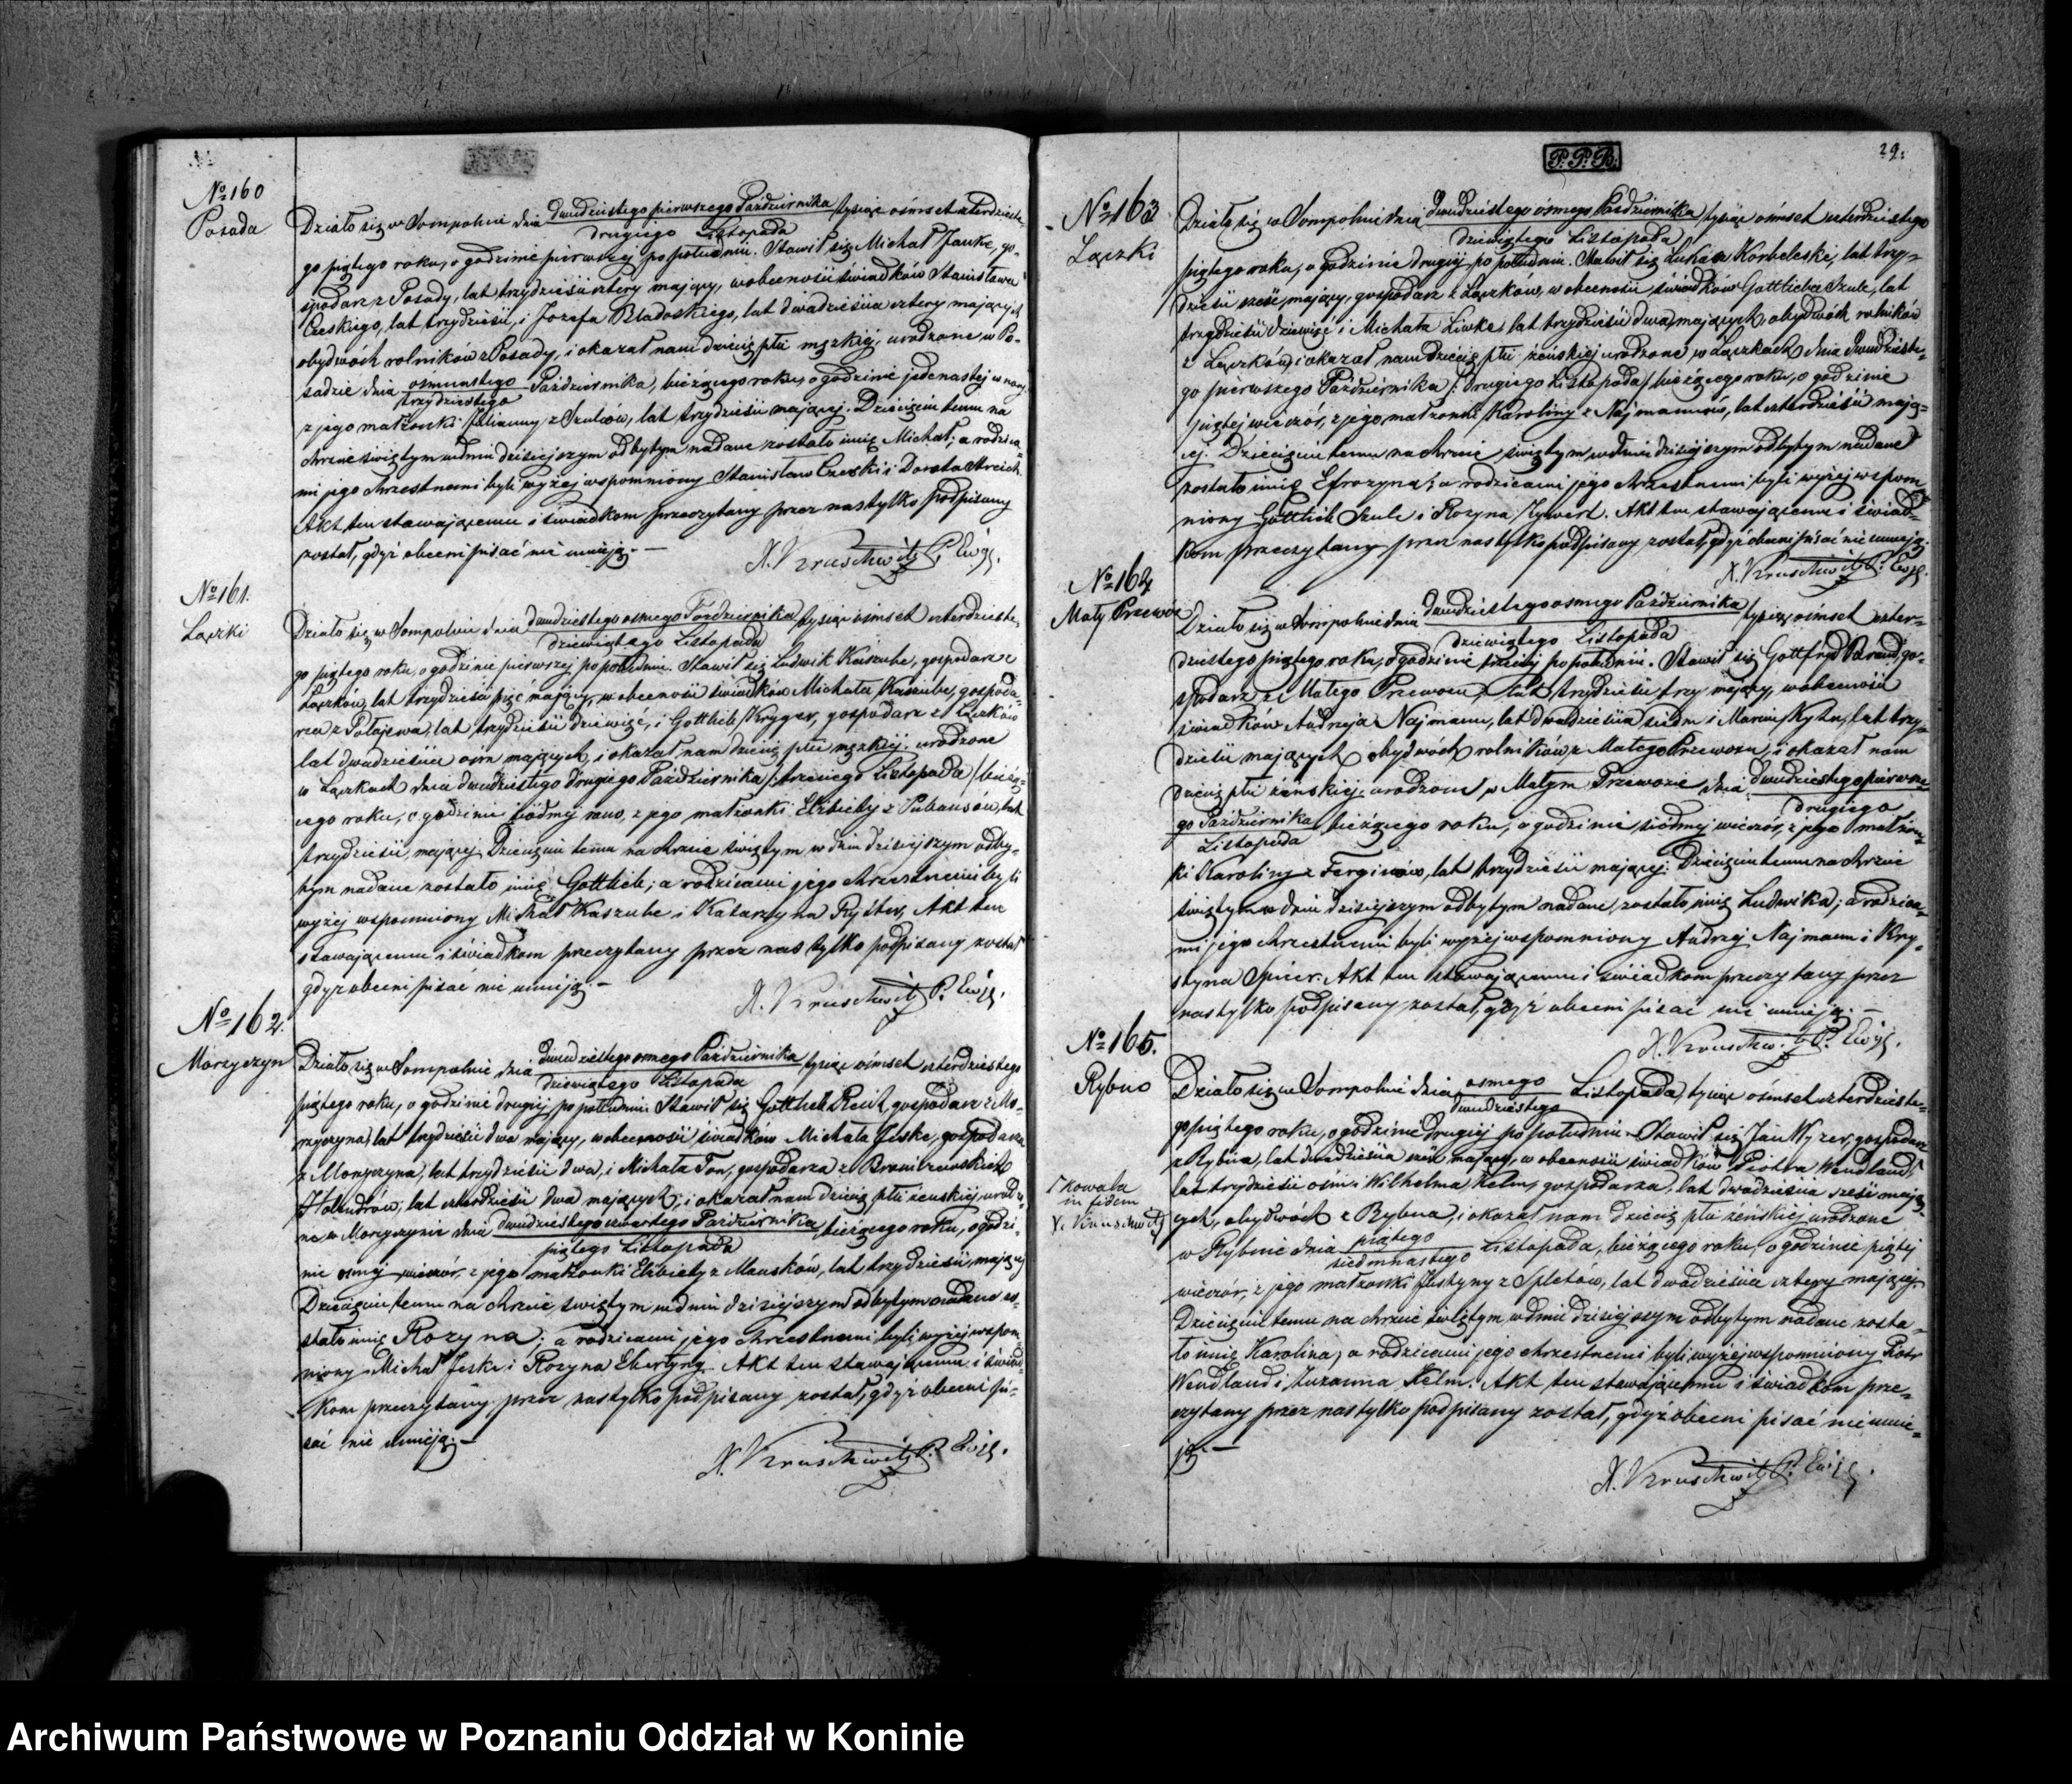 № 160
Posada
Działo się w Sompolnie dnia dwudziestego pierwszego Października tysiąc ośmset czterdzieste-
drugiego Listopada
go piątego roku, o godzinie pierwszej po południu. Stawił się Michał Janke, go-
spodarz z Posady, lat trzydzieści cztery mający, w obecności świadków Stanisława
Czeskiego, lat trzydzieści, i Józefa Bladoskiego, lat dwadzieścia cztery mających
obydwóch rolników z Posady, i okazał nam dziecię płci męzkiéj, urodzone w Po-
sadzie dnia ośmnastego Października, bieżącego roku, o godzinie jedenastej w nocy
trzydziestego
z jego małżonki Julianny z Szulców, lat trzydzieści mającej. Dziecięciu temu na
chrzcie świętym w dniu dzisiejszym odbytym nadane zostało imię Michał; a rodzica-
mi jego chrzestnemi byli wyżej wspomniony Stanisław Czeski i Dorota
Akt ten stawającemu i świadkom przeczytany przez nas tylko podpisany
został, gdyż obecni pisać nie umieją. —
X. Kruschwitz P. Ewg.
№ 161.
Łączki
Działo się w Sompolnie dnia dwudziestego osmego Października tysiąc ośmset czterdzieste-
dziewiątego Listopada
go piątego roku, o godzinie pierwszej po południu. Stawił się Ludwik Kaszube, gospodarz z
Łączków, lat trzydzieści pięć mający, w obecności świadków Michała Kaszube, gospoda-
rza z Połajewa, lat trzydzieści dziewięć, i Gottlieb Kryger, gospodarz z Łączków
lat dwadzieścia osm mających, i okazał nam dziecię płci męzkiéj, urodzone
w Łączkach dnia dwudziestego drugiego Października /: trzeciego Listopada :/ bieżą-
cego roku, o godzinie siódmej rano, z jego małżonki Elżbiety z Pubanców, lat
trzydzieści, mającej. Dziecięciu temu na chrzcie świętym w dniu dzisiejszym odby-
tym nadane zostało imię Gottlieb; a rodzicami jego chrzestnemi byli
wyżej wspomniony Michał Kaszube i Katarzyna Ryster, Akt ten
stawającemu i świadkom przeczytany przez nas tylko podpisany został
gdyż obecni pisać nie umieją. —
X. Kruschwitz P. Ewg.
№ 162.
Mórzyczyn
Działo się w Sompolnie dnia dwudziestego osmego Października tysiąc ośmset czterdziestego
dziewiątego Listopada
piątego roku, o godzinie drugiej po południu. Stawił się Gottlieb gospodarz z Mo-
rzyczyna, lat trzydzieści dwa mający, w obecności świadków Michała Jeske, gospodarza
z Morzyczyna, lat trzydzieści dwa, i Michała Ton, gospodarza z
Holendrów, lat czterdzieści dwa mających; i okazał nam dziecię płci żeńskiej, urodzo-
ne w Morzyczynie dnia dwudziestego czwartego Października bieżącego roku, o godzi-
piątego Listopada
nie osmej wieczór, z jego małżonki Elżbiety z Mansków, lat trzydzieści, mającej
Dziecięciu temu na chrzcie świętym w dniu dzisiejszym odbytym nadane zo-
stało imię Rozyna; a rodzicami jego chrzestnemi byli wyżej wspom-
niony Michał Jeske i Rozyna Akt ten stawającemu i świad-
kom przeczytany przez nas tylko podpisany został, gdyż obecni pi-
sać nie umieją. —
X. Kruschwitz P. Ewg.
P. P. B.
29.
№ 163
Łączki
Działo się w Sompolnie dnia dwudziestego ósmego Października tysiąc ośmset czterdziestego
dziewiątego Listopada
piątego roku, o godzinie drugiej po południu. Stawił się Łukasz Korbeleski, lat trzy-
dzieści sześć, mający, gospodarz z Łączków, w obecności świadków Gottlieba Szulc, lat
trzydzieści dziewięć i Michała Liwke lat trzydzieści dwa mających, obydwóch rolników
z Łączków, i okazał nam dziecię płci żeńskiej urodzone w Łączkach dnia dwudzieste-
go pierwszego Października /: drugiego Listopada :/ bieżącego roku, o godzinie
piątej wieczór, z jego małżonki Karoliny z Najmannów, lat czterdzieści mają-
cej. Dziecięciu temu na chrzcie świętym w dniu dzisiejszym odbytym nadane
zostało imię Efrozyna; a rodzicami jego chrzestnemi byli wyżej wspom-
niony Gottlieb Szulc i Rozyna Zywert. Akt ten stawającemu i świad-
kom przeczytany przez nas tylko podpisany został, gdyż obecni pisać nie umieją.
X. Kruschwitz P. Ewg.
№ 164
Mały Przewóz
Działo się w Sompolnie dnia dwudziestego osmego Października tysiąc ośmset czter-
dziewiątego Listopada
dziestego piątego roku, o godzinie trzeciej po południu. Stawił się Gottfryd Brand, go-
spodarz z Małego Przewozu, lat trzydzieści trzy mający, w obecności
świadków Andrzeja Najmann, lat dwadzieścia siedm i Marcin lat trzy-
dzieści mających, obydwóch rolników z Małego Przewozu, i okazał nam
dziecię płci żeńskiej, urodzone w Małym Przewozie dnia dwudziestego pierwsze-
drugiego
go Października bieżącego roku, o godzinie siódmej wieczór, z jego małżon-
Listopada
ki Karoliny z Ferginców, lat trzydzieści mającej. Dziecięciu temu na chrzcie
świętym w dniu dzisiejszym odbytym nadane zostało imię Ludwika; a rodzica-
mi jego chrzestnemi byli wyżej wspomniony Andrzej Najmann i Kry-
styna Spicer. Akt ten stawającemu i świadkom przeczytany przez
nas tylko podpisany został, gdyż obecni pisać nie umieją. —
X. Kruschwitz P. Ewg.
№ 165.
Rybno
Działo się w Sompolnie dnia osmego Listopada tysiąc ośmset czterdzieste-
dwudziestego
go piątego roku, o godzinie drugiej po południu. Stawił się Jan Wyzer, gospodarz
z Rybna, lat dwadzieścia sześć mający, w obecności świadków Piotra Wendland,
kowala
in fidem
X. Kruschwitz
lat trzydzieści ośm i Wilhelma Kelm, gospodarza, lat dwadzieścia sześć mają-
cych, obydwóch z Rybna, i okazał nam dziecię płci żeńskiej urodzone
w Rybnie dnia piątego Listopada, bieżącego roku, o godzinie piątej
siedmnastego
wieczór, z jego małżonki Justyny z Spletów, lat dwadzieścia cztery mającej.
Dziecięciu temu na chrzcie świętym w dniu dzisiejszym odbytym nadane zosta-
ło imię Karolina, a rodzicami jego chrzestnemi byli wyżej wspomniony Piotr
Wendland i Zuzanna Kelm. Akt ten stawającemu i świadkom prze-
czytany przez nas tylko podpisany został, gdyż obecni pisać nie umie-
ją. —
X. Kruschwitz P. Ewg.
Archiwum Państwowe w Poznaniu Oddział w Koninie